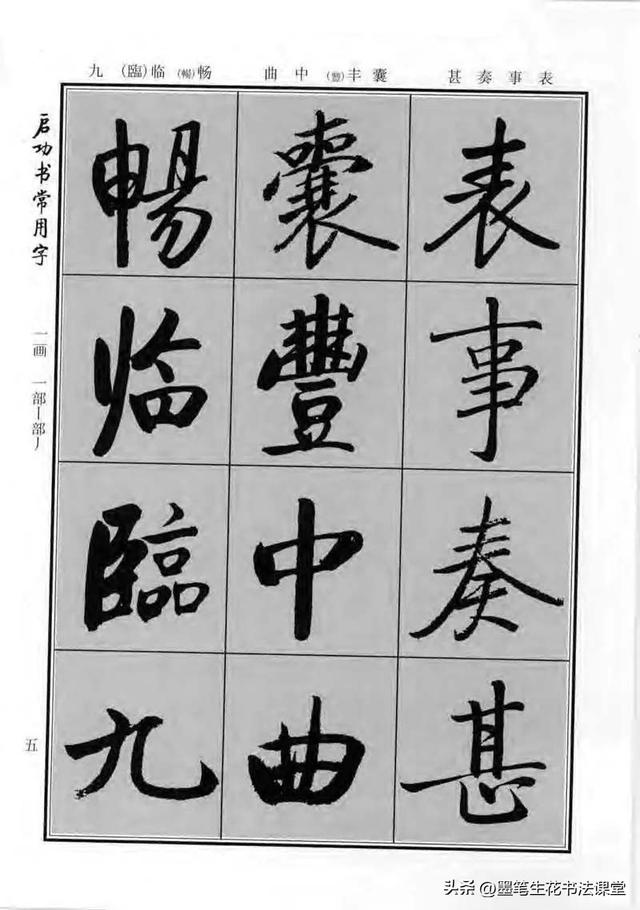 表事奏甚
囊丰(豐)中曲
畅(暢)临(臨)九
表事奏甚
囊豐中曲
暢临臨九
启功书常用字
一画 一部丨部丿
五
头条 @墨笔生花书法课堂